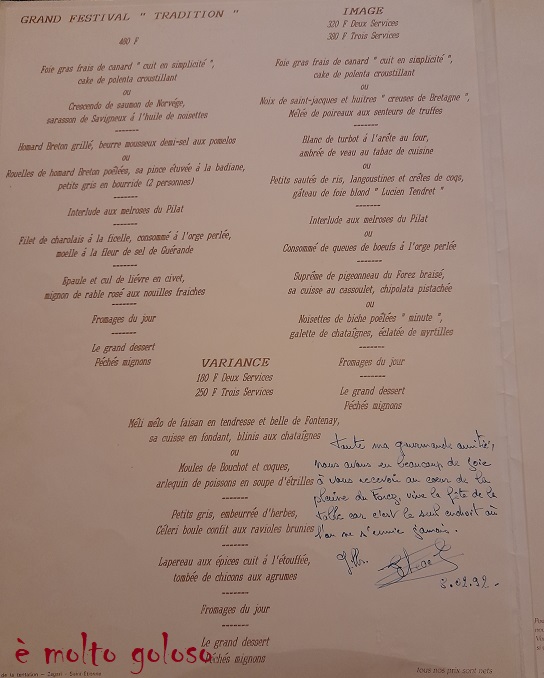 GRAND FESTIVAL " TRADITION "
480 F
Foie gras frais de canard " cuit en simplicité ",
cake de polenta croustillant
ou
Crescendo de saumon de Norvége,
sarasson de Savigneux á l'huile de noisettes
-------
Homard Breton grillé, beurre mousseux demi-sel aux pomelos
ou
Rouelles de homard Breton poêlées, sa pince étuvée à la badiane,
petits gris en bourride (2 personnes)
-------
Interlude aux melroses du Pilat
-------
Filet de charolais á la ficelle, consommé á l'orge perlée,
moelle à la fleur de sel de Guérande
-------
Epaule et cul de liévre en civet,
mignon de rable rosé aux nouilles fraiches
-------
Fromages du jour
-------
Le grand dessert
Péchés mignons
IMAGE
320 F Deux Services
380 F Trois Services
Foie gras frais de canard " cuit en simplicité ",
cake de polenta croustillant
ou
Noix de saint-jacques et huitres " creuses de Bretagne ",
Mélée de poireaux aux senteurs de truffes
-------
Blanc de turbot à l'arête au four,
ambrée de veau au tabac de cuisine
ou
Petits sautés de ris, langoustines et crêtes de coqs,
gâteau de foie blond " Lucien Tendret "
-------
Interlude aux melroses du Pilat
ou
Consommé de queues de boeufs á l'orge perlée
-------
Suprême de pigeonneau du Forez braisé,
sa cuisse au cassoulet, chipolata pistachée
ou
Noisettes de biche poêlées " minute ",
galette de chataîgnes, éclatée de myrtilles
-------
Fromages du jour
-------
Le grand dessert
Péchés mignons
VARIANCE
180 F Deux Services
250 F Trois Services
Méli mélo de faisan en tendresse et belle de Fontenay,
sa cuisse en fondant, blinis aux chataîgnes
ou
Moules de Bouchot et coques,
arlequin de poissons en soupe d'étrilles
-------
Petits gris, embeurrée d'herbes,
Céleri boule confit aux ravioles brunies
-------
Lapereau aux épices cuit á l'étouffée,
tombée de chicons aux agrumes
-------
Fromages du jour
-------
Le grand dessert
Péchés mignons
Toute ma gourmande amitié,
nous avons eu beaucoup de joie
à vous recevoir au coeur de la
plaine du Forez, vive la fête de la
table car c'est le seul endroit où
l'on ne s'ennuie jamais.
5.02.92
è molto goloso
de la tentation -
Tous nos prix sont nets